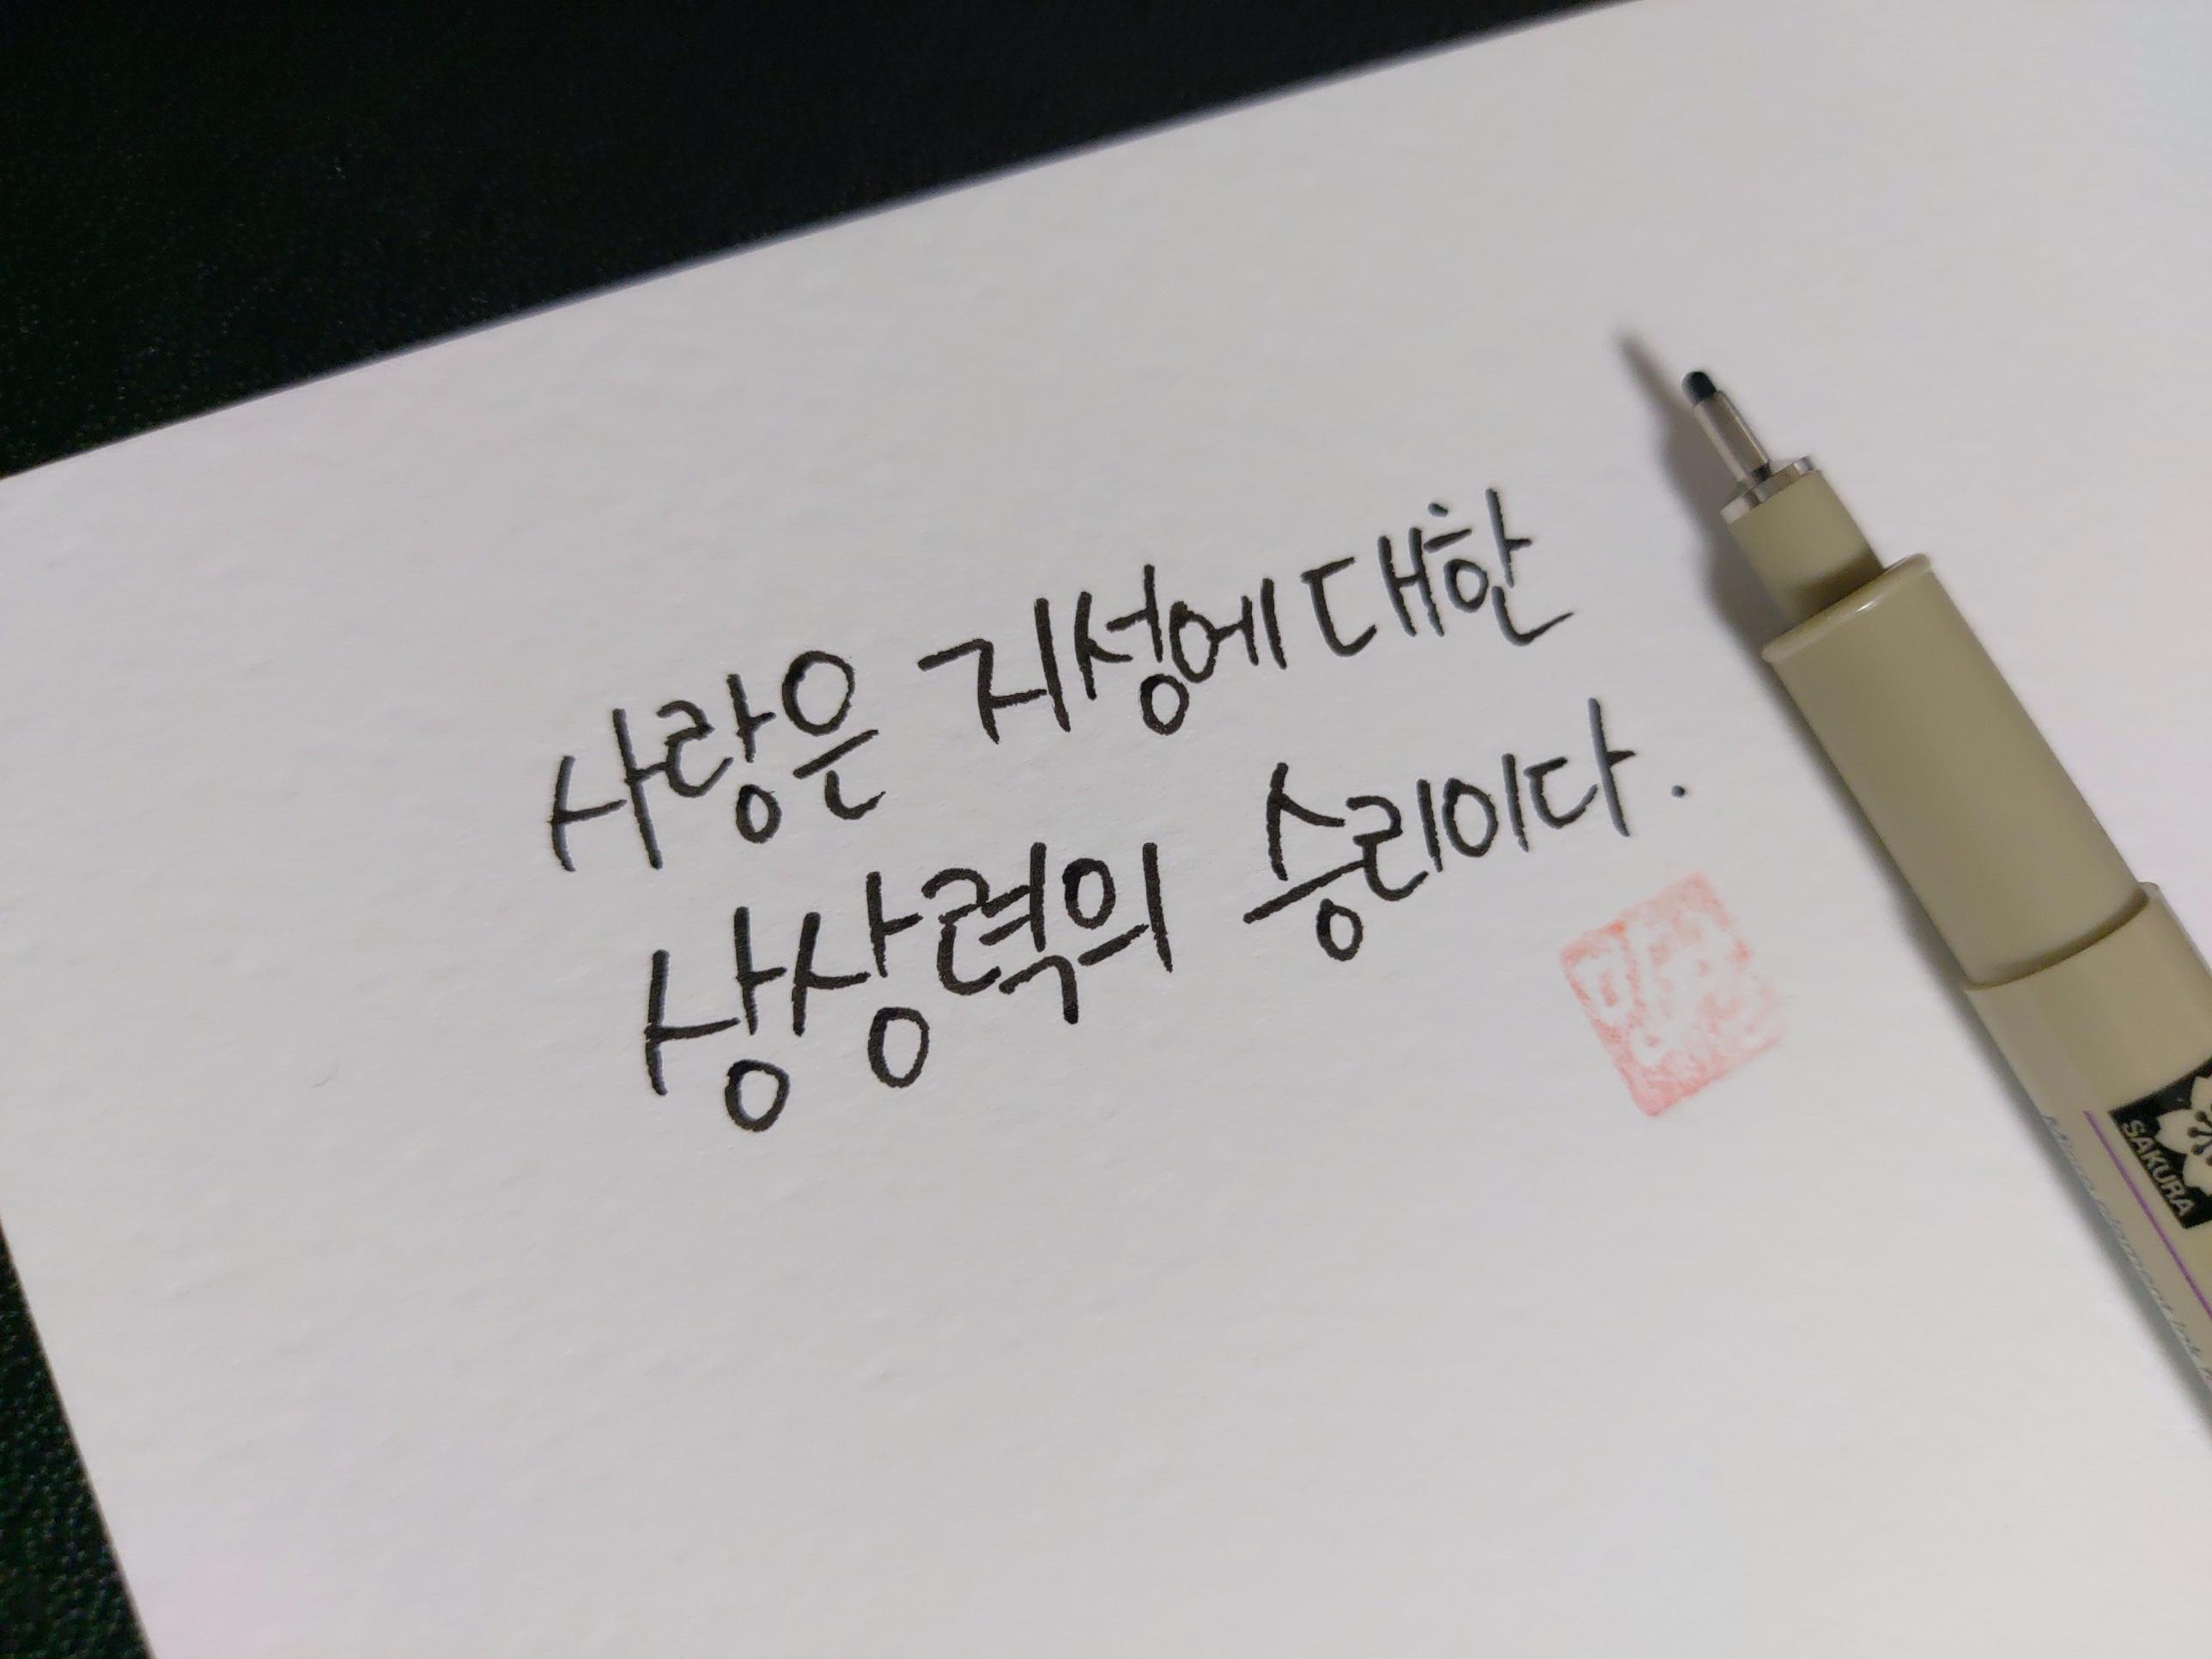 사랑은 지성에 대한
상상력의 승리이다.
SAKURA